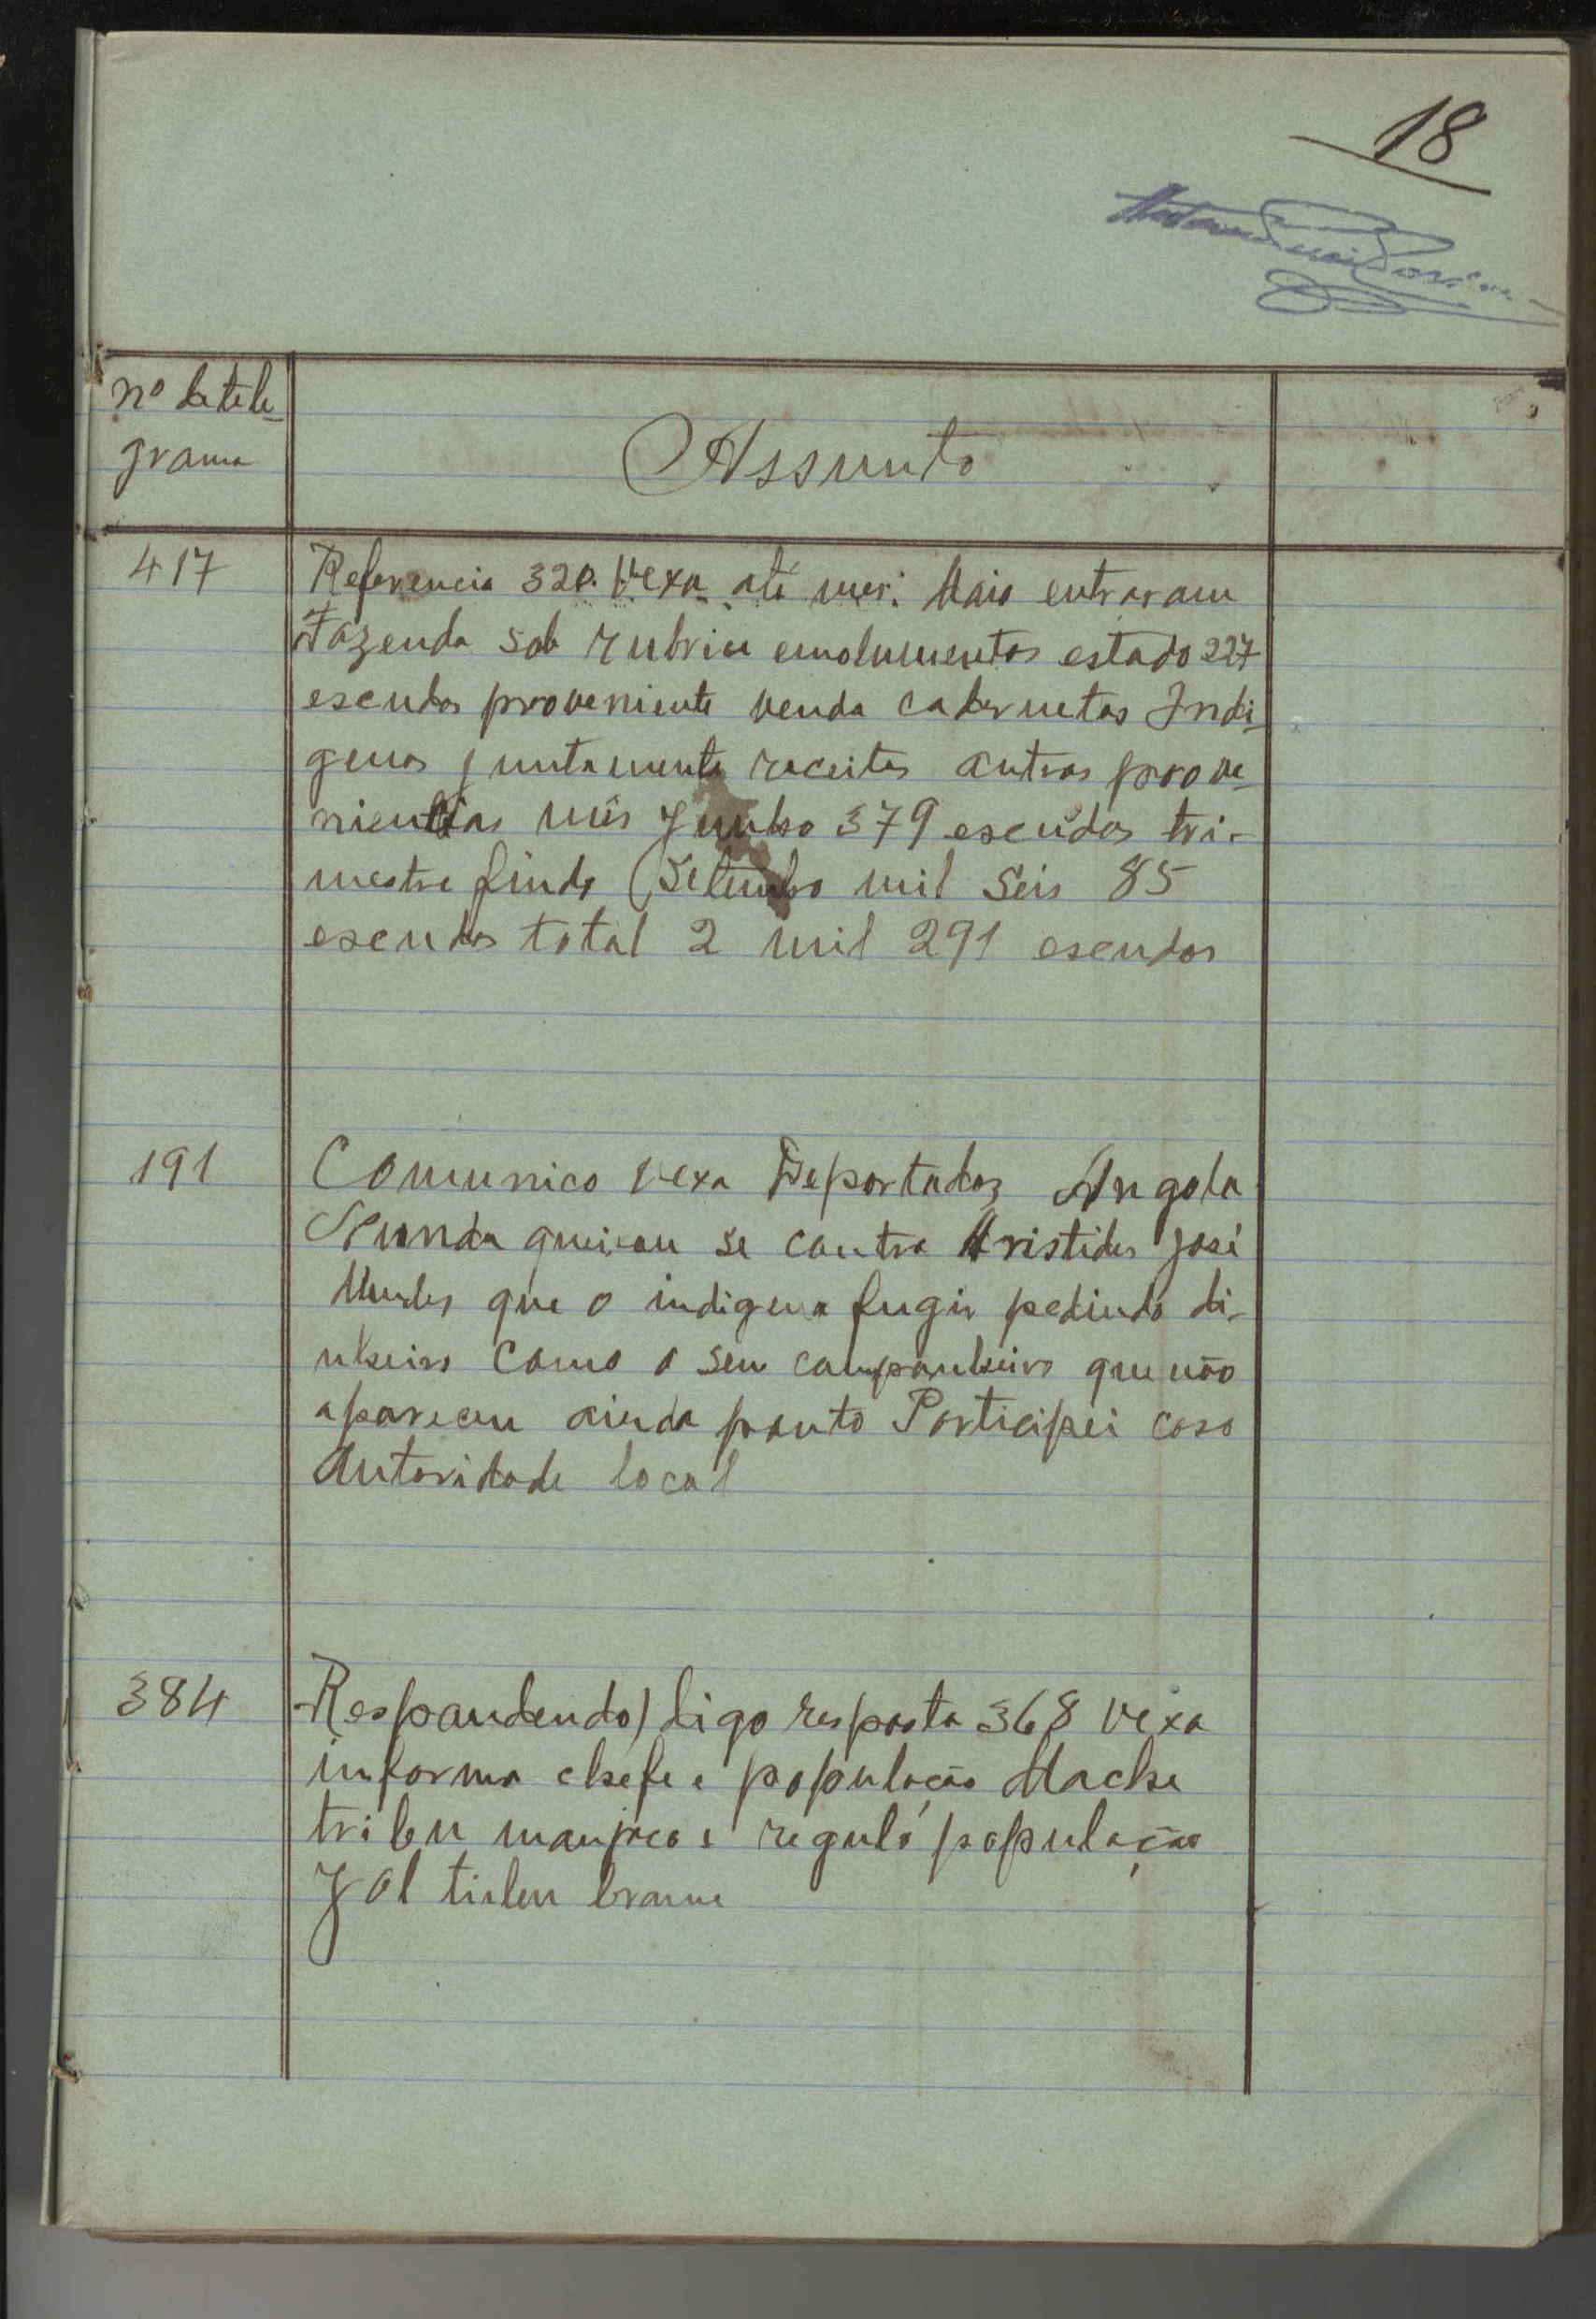 18
nº de tele-
grama
Assunto
417
Referencia 320. Vexa até mez. Maio entraram
Fazenda sob rubrica emolumentos estado 227
escudos proveniente venda cadernetas Indi-
genas juntamente receitas outras prove-
niencias mês Junho 379 escudos tri-
mestre findo Setembro mil seis 85
escudos total 2 mil 291 escudos
191
Comunico Vexa Deportados Angola
queixou se contra Aristides José
Mendes que o indigena fugir pedindo di-
nheiro como o seu companheiro que não
apareceu ainda ponto Participei caso
Autoridade local
384
Respondendo) digo resposta 368 Vexa
informa chefe e população Machê
tribu manjaco e reguló população
Jol tribu brame